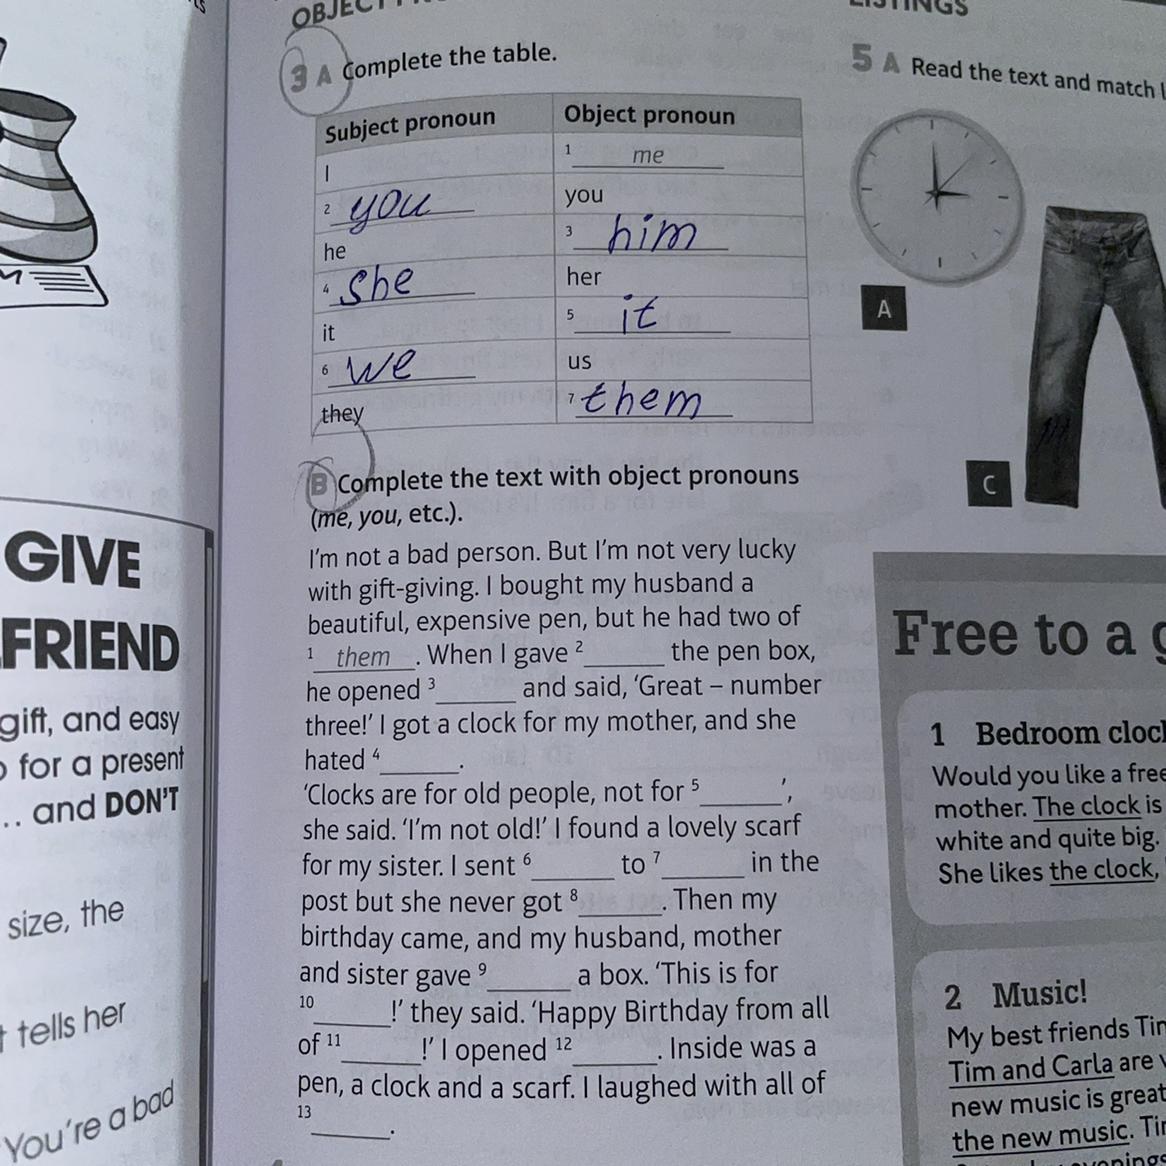 3 A Complete the table.
Subject pronoun Object pronoun
I 1 me
2 you you
he 3 him
4 she her
it 5 it
6 we us
they 7 them
B Complete the text with object pronouns
(me, you, etc.).
I'm not a bad person. But I'm not very lucky
with gift-giving. I bought my husband a
beautiful, expensive pen, but he had two of
1 them . When I gave 2______ the pen box,
he opened 3______ and said, 'Great – number
three!' I got a clock for my mother, and she
hated 4______.
'Clocks are for old people, not for 5______',
she said. 'I'm not old!' I found a lovely scarf
for my sister. I sent 6______ to 7______ in the
post but she never got 8______. Then my
birthday came, and my husband, mother
and sister gave 9______ a box. 'This is for
10______!' they said. 'Happy Birthday from all
of 11______!' I opened 12______. Inside was a
pen, a clock and a scarf. I laughed with all of
13______.
5 A Read the text and match
A
C
Free to a g
1 Bedroom clock
Would you like a free
mother. The clock is
white and quite big.
She likes the clock,
2 Music!
My best friends Tim
Tim and Carla are
new music is great
the new music. Tim
GIVE
FRIEND
gift, and easy
for a present
... and DON'T
size, the
tells her
You're a bad